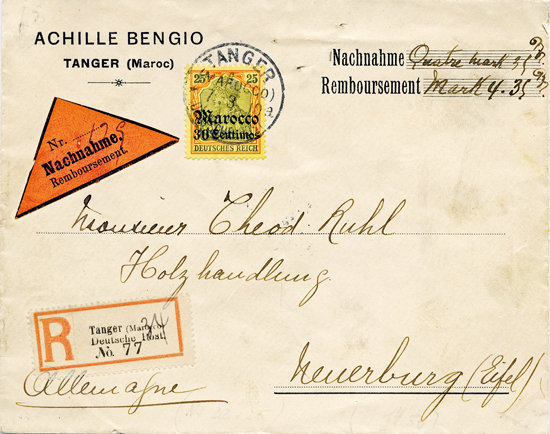 ACHILLE BENGIO
TANGER (Maroc)
Nachnahme Quatre mark 35
Remboursement Mark 4.35
TANGER
(MAROCCO)
25 25
Marocco
30 Centimos
DEUTSCHES REICH
Nr.
Nachnahme.
Remboursement.
Monsieur Theod. Ruhl
Holzhandlung.
R
Tanger (Marocco)
Deutsche Post.
No. 77
Allemagne
Neuerburg (Eifel)